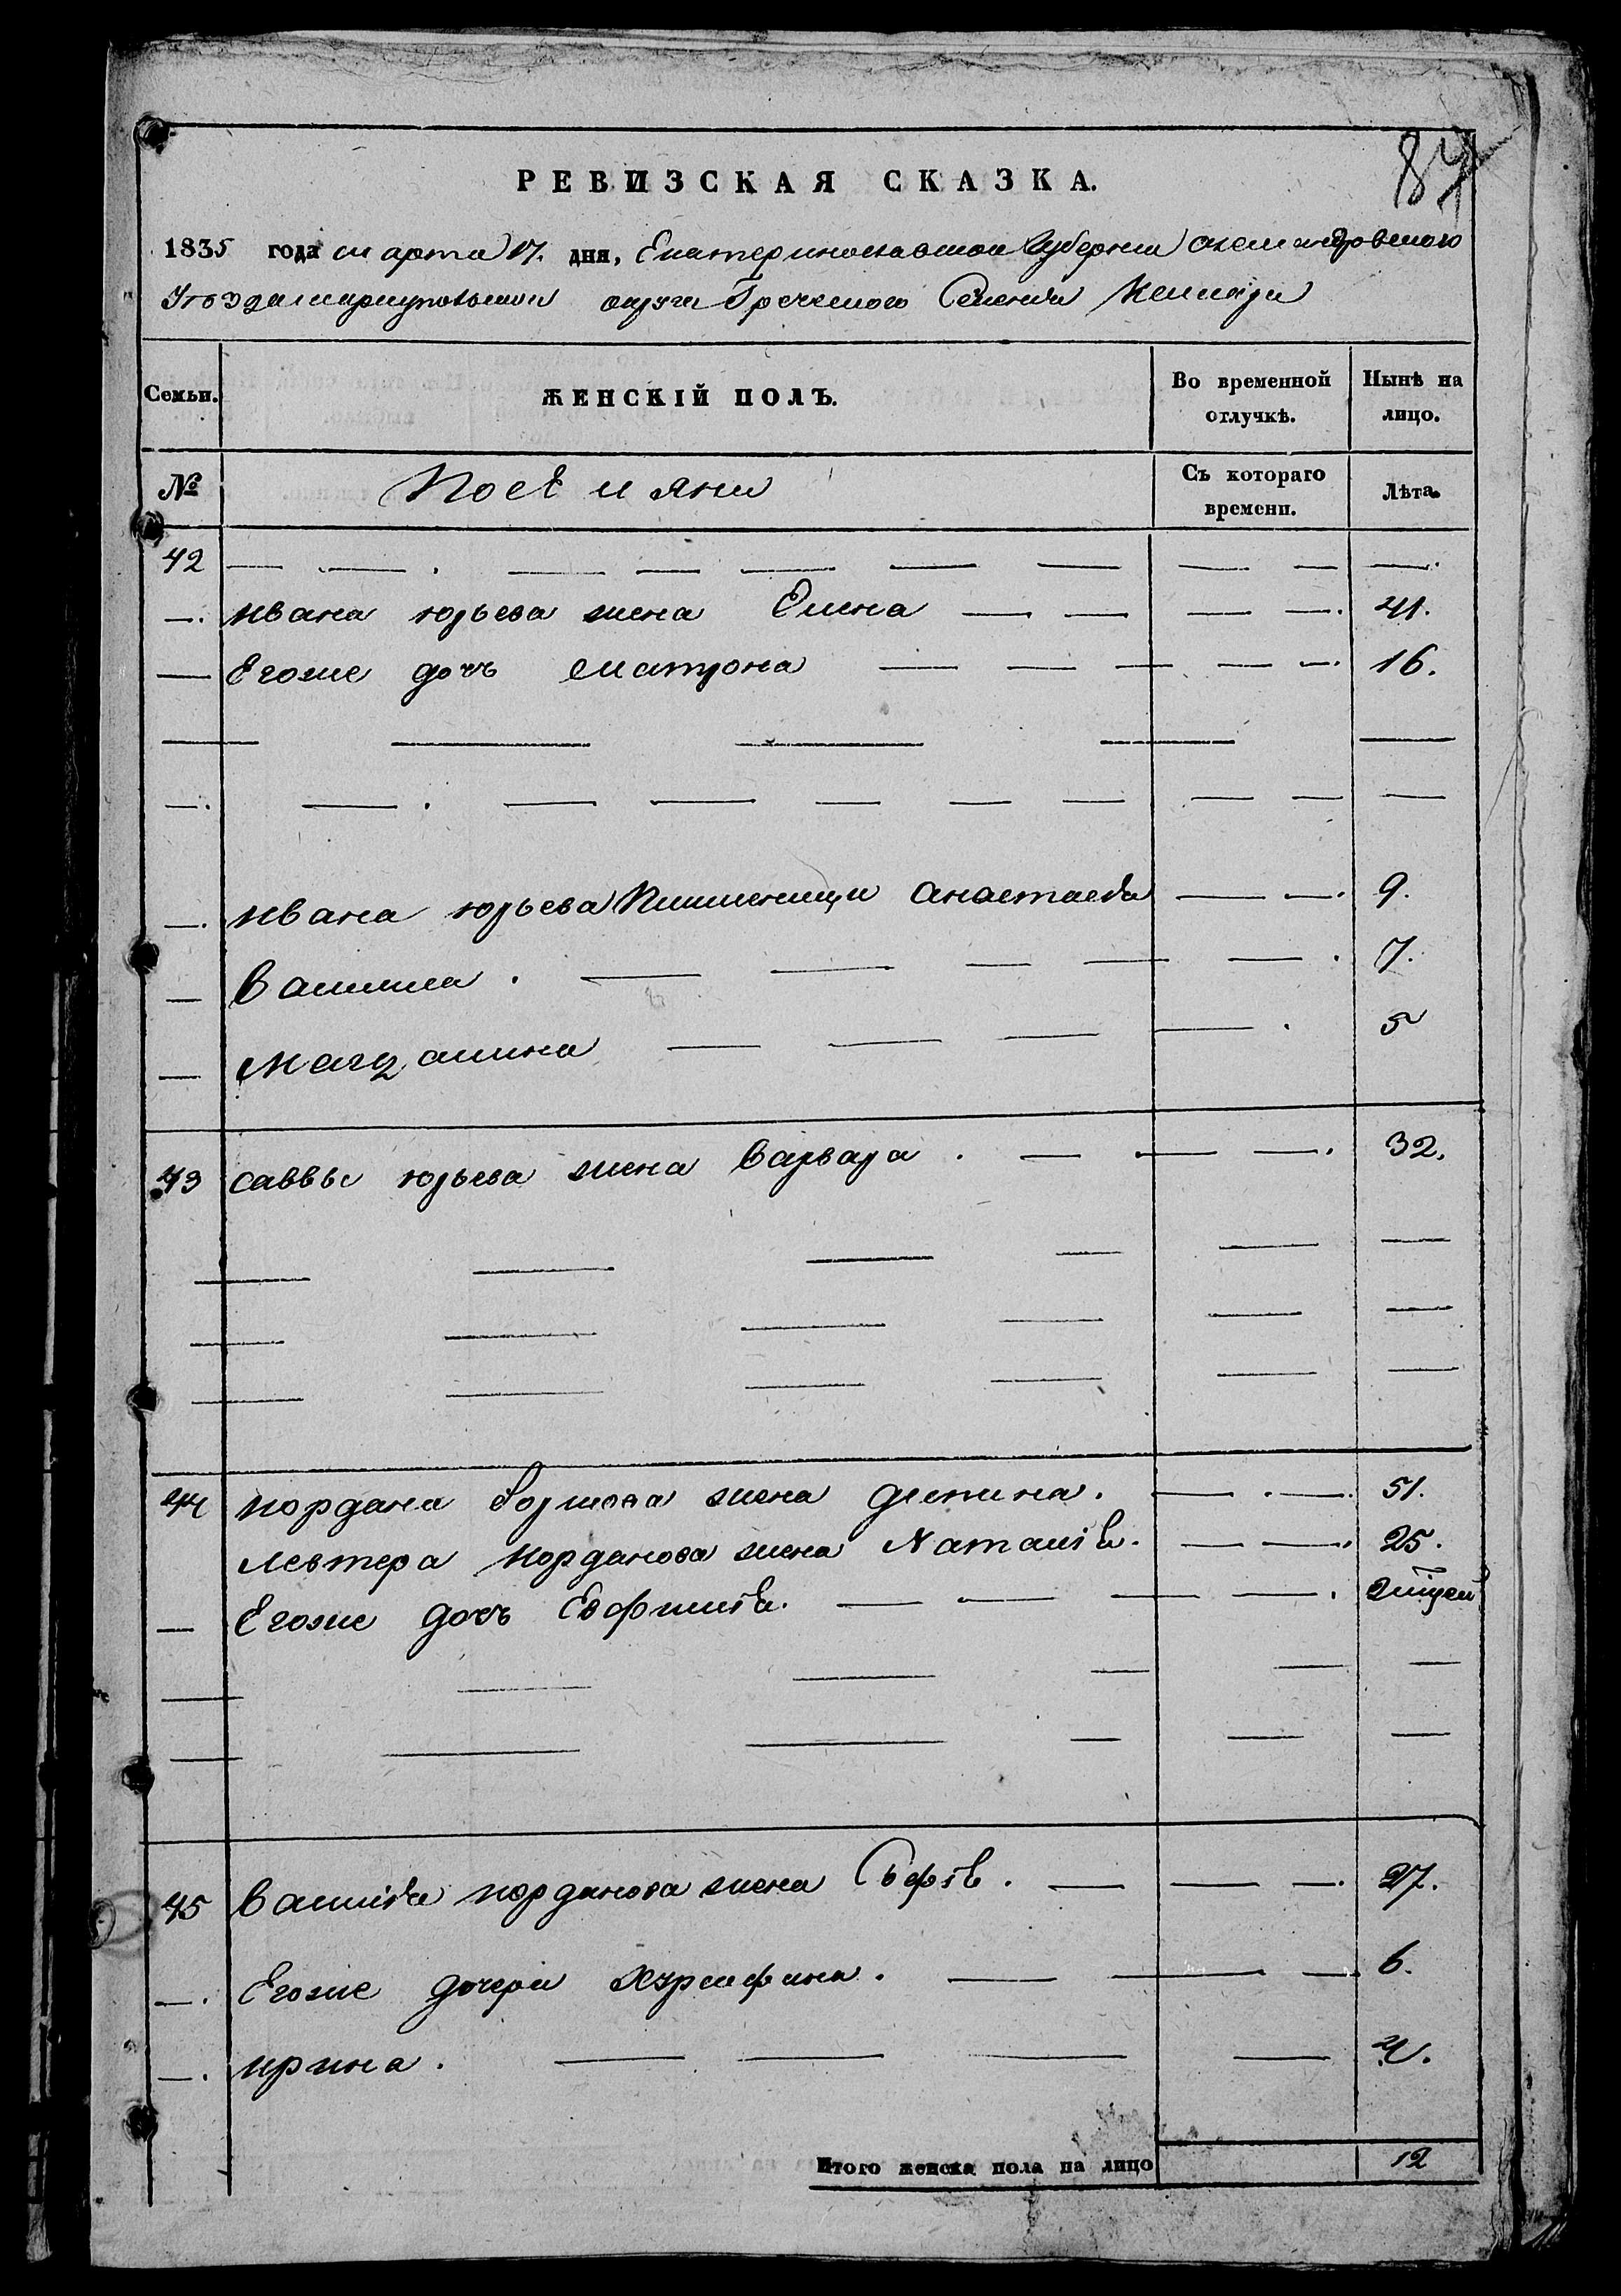 84
РЕВИЗСКАЯ СКАЗКА.
1835 года марта 17. дня, Екатеринославской Губернии Александровского
Уезда мариупольского округа Греческого Селения
Семьи. ЖЕНСКІЙ ПОЛЪ. Во временной отлучкѣ. Нынѣ на лицо.
№ Поселяни Съ котораго времени. Лѣта.
42
Ивана юрьева жена Елена 41.
Егоже дочь Матрона 16.
Ивана юрьева Анастасія 9.
Василиса 7.
Магдалина 5
43 саввы юрьева жена Варвара 32.
44 Иордана жена Деспина. 51.
Левтера Иорданова жена Наталія. 25.
Егоже дочь Евфимія.
45 Василія Иорданова жена Софія. 27.
Егоже дочери 6.
Ирина. 4.
Итого женска пола на лицо 12